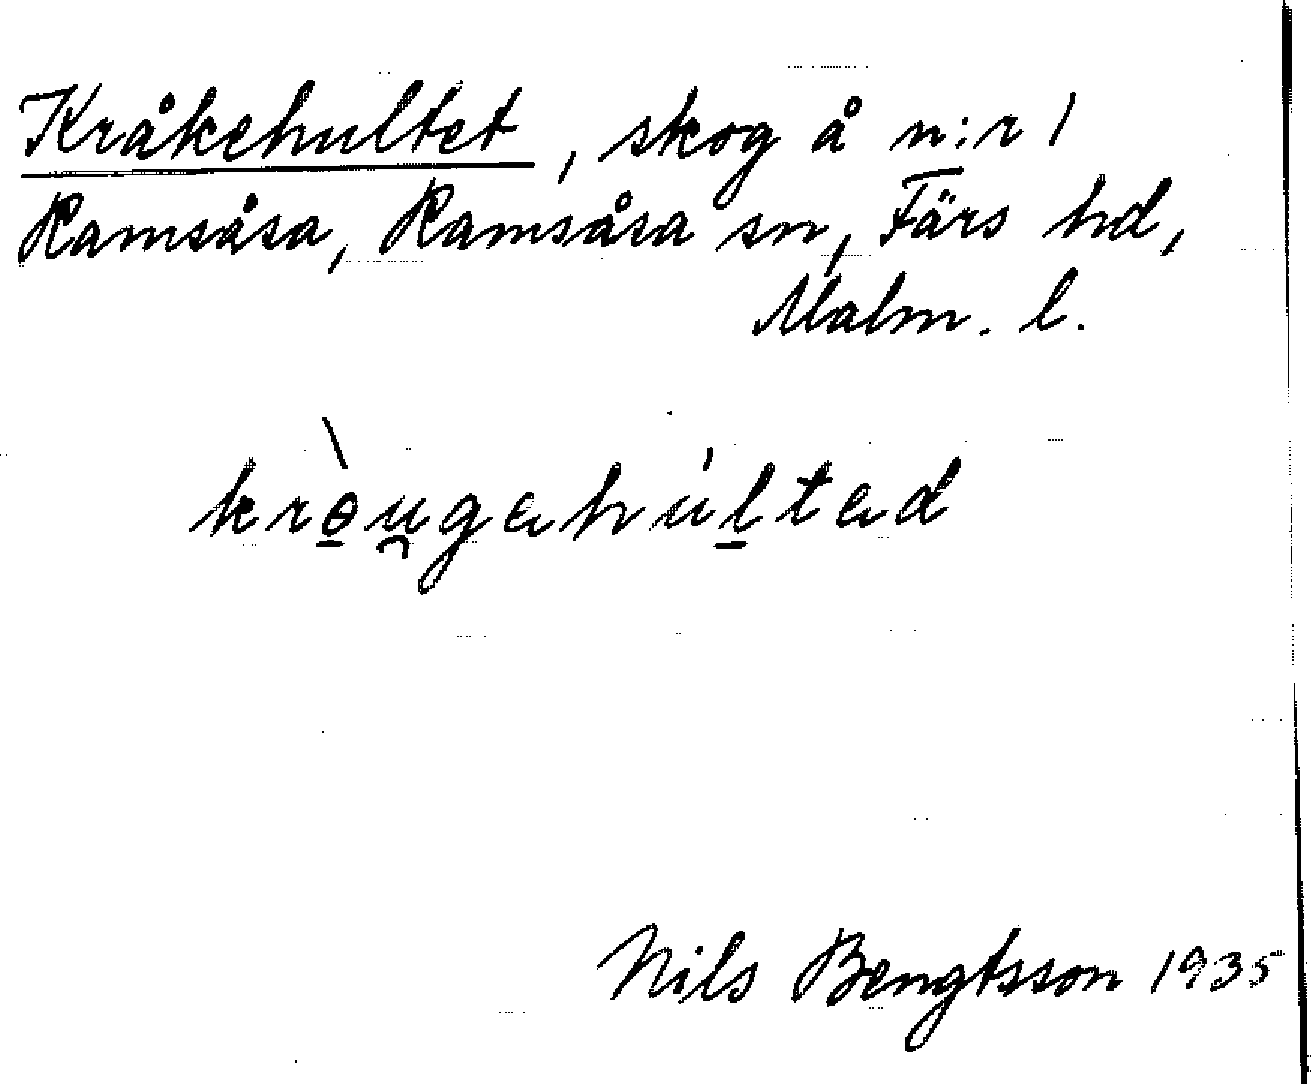 Kråkehultet, skog å n:r 1
Ramsåsa, Ramsåsa sn, Färs hd,
Malm. l.
krө̠̀u̯gahúl̠tad
Nils Bengtsson 1935